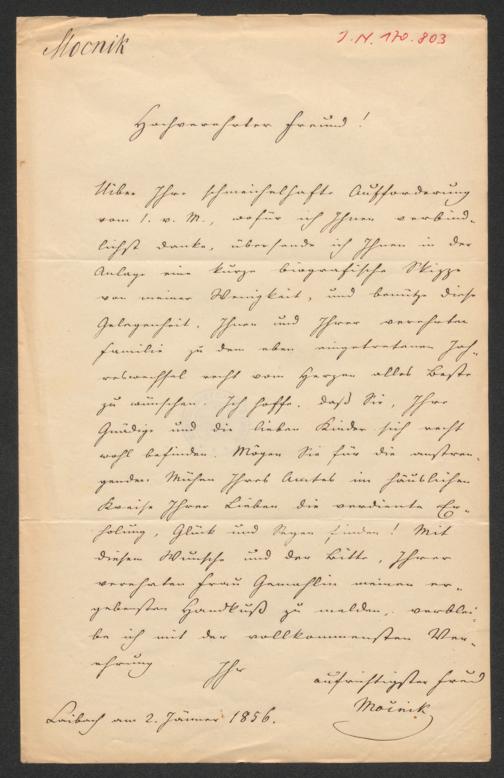 Mocnik
J.N. 170.803
Hochverehrter Freund!
Über Ihre schmeichelhafte Aufforderung
vom 1. v. M., wofür ich Ihnen verbind-
lichst danke, übersende ich Ihnen in der
Anlage eine kurze biografische Skizze
von meiner Wenigkeit, und benütze diese
Gelegenheit, Ihnen und Ihrer verehrten
Familie zu dem eben eingetretenen Jah-
reswechsel recht vom Herzen alles Beste
zu wünschen. Ich hoffe, daß Sie, Ihre
Gnädige und die lieben Kinder sich recht
wohl befinden. Mögen Sie für die anstren-
genden Mühen Ihres Amtes im häuslichen
Kreise Ihrer Lieben die verdiente Er-
holung, Glück und Segen finden! Mit
diesem Wunsche und der Bitte, Ihrer
verehrten Frau Gemahlin meinen er-
gebensten Handkuß zu melden, verblei-
be ich mit der vollkommensten Ver-
ehrung
Ihr
aufrichtigster Freund
Močnik
Laibach am 2. Jänner 1856.